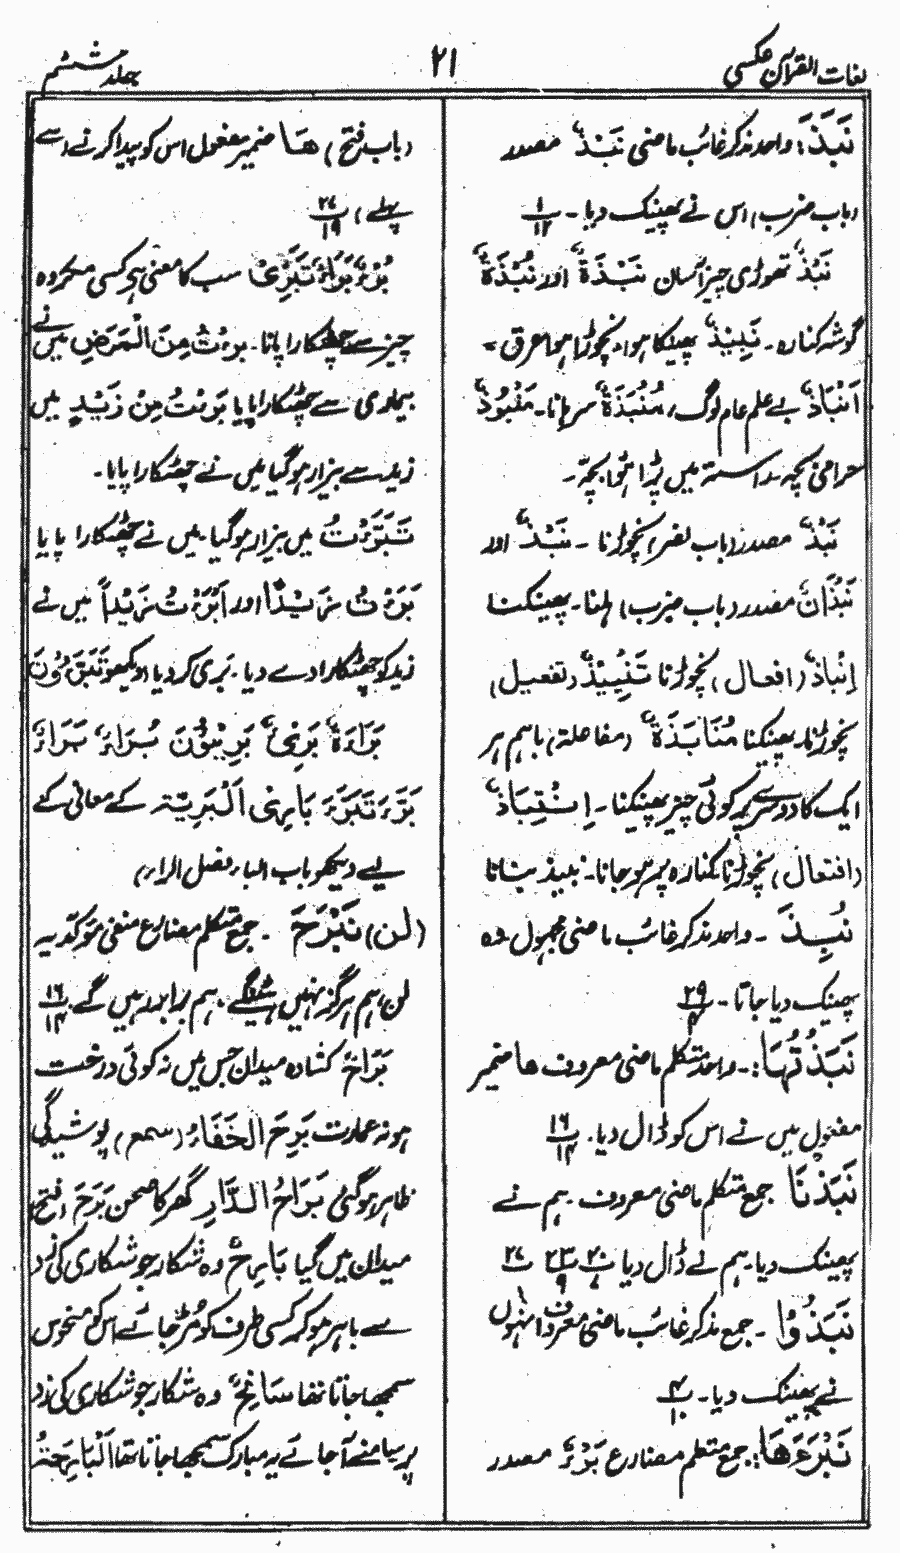 لغات القرآن عکسی
۲۱
جلد ششم
نَبَذَ: واحد مذکر غائب ماضی نَبْذٌ مصدر
(باب ضرب) اس نے پھینک دیا۔ ۱/۱۲
نَبْذٌ تھوڑی چیز آسان نَبْذَةٌ اور نُبْذَةٌ
گوشہ کنارہ۔ نَبِیْذٌ پھینکا ہوا۔ نچوڑا ہوا عرق۔
اَنْبَاذٌ بے علم عام لوگ، مَنْبَذَةٌ سرہانا۔ مَنْبُوْذٌ
حرامی بچہ۔ راستہ میں پڑا ہوا بچہ۔
نَبْذٌ مصدر (باب نصر) نچوڑنا۔ نَبْذٌ اور
نَبْذَانٌ مصدر (باب ضرب) ہلنا۔ پھینکنا
اِنْبَاذٌ (افعال) نچوڑنا تَنْبِیْذٌ (تفعیل)
نچوڑنا۔ پھینکنا مُنَابَذَةٌ (مفاعلة) باہم ہر
ایک کا دوسرے کو کوئی چیز پھینکنا۔ اِنْتِبَاذٌ
(افتعال) نچوڑنا کنارہ پر ہو جانا۔ نبیذ بنانا
نُبِذَ۔ واحد مذکر غائب ماضی مجہول وہ
پھینک دیا جاتا۔ ۲۹/۴
نَبَذْتُهَا:۔ واحد متکلم ماضی معروف ھا ضمیر
مفعول میں نے اس کو ڈال دیا۔ ۱۶/۱۴
نَبَذْنَا جمع متکلم ماضی معروف۔ ہم نے
پھینک دیا۔ ہم نے ڈال دیا
نَبَذُوْا۔ جمع مذکر غائب ماضی معروف انہوں
نے پھینک دیا۔ ۴/۱۰
نَبْرَءَهَا: جمع متکلم مضارع بَرْءٌ مصدر
(باب فتح) هَا ضمیر مفعول اس کو پیدا کرنے سے
پہلے) ۲۷/۱۹
بُرْءٌ بَرَاءٌ تَبَرِّیْ سب کا معنی ہے کسی مکروہ
چیز سے چھٹکارا پانا۔ بَرِءْتُ مِنَ الْمَرَضِ میں نے
بیماری سے چھٹکارا پایا بَرِئْتُ مِنْ زَیْدٍ میں
زید سے بیزار ہو گیا میں نے چھٹکارا پایا۔
تَبَرَّءْتُ میں بیزار ہو گیا۔ میں نے چھٹکارا پایا
بَرَءْتُ زَیْدًا اور اَبْرَءْتُ زَیْدًا میں نے
زید کو چھٹکارا دے دیا۔ بری کر دیا (دیکھو
بَرَاءَةٌ بَرِیْءٌ بَرِیْئُوْنَ بُرَاءٌ بَرَاءٌ
بَرَّءَ تَبَرَّءَ بَارِیْ اَلْبَرِیَّة کے معانی کے
لیے دیکھو باب الباء فصل الراء)
(لن) نَبْرَحَ۔ جمع متکلم مضارع منفی مؤکد بہ
لن، ہم ہرگز نہیں ہٹیں گے۔ ہم برابر رہیں گے۔ ۱۶/۱۴
بَرَاحٌ کشادہ میدان جس میں نہ کوئی درخت
ہو نہ عمارت بَرِحَ الْخَفَاءُ (سمع) پوشیدگی
ظاہر ہو گئی بَرَاحُ الدَّارِ گھر کا صحن بَرَحَ (فتح)
میدان میں گیا بَارِحٌ وہ شکار جو شکاری کی زد
سے باہر ہو کر کسی طرف کو مڑ جائے اس کو منحوس
سمجھا جاتا تھا سَانِحٌ وہ شکار جو شکاری کی زد
پر سامنے آ جائے یہ مبارک سمجھا جاتا تھا اَلْبَارِحَةُ